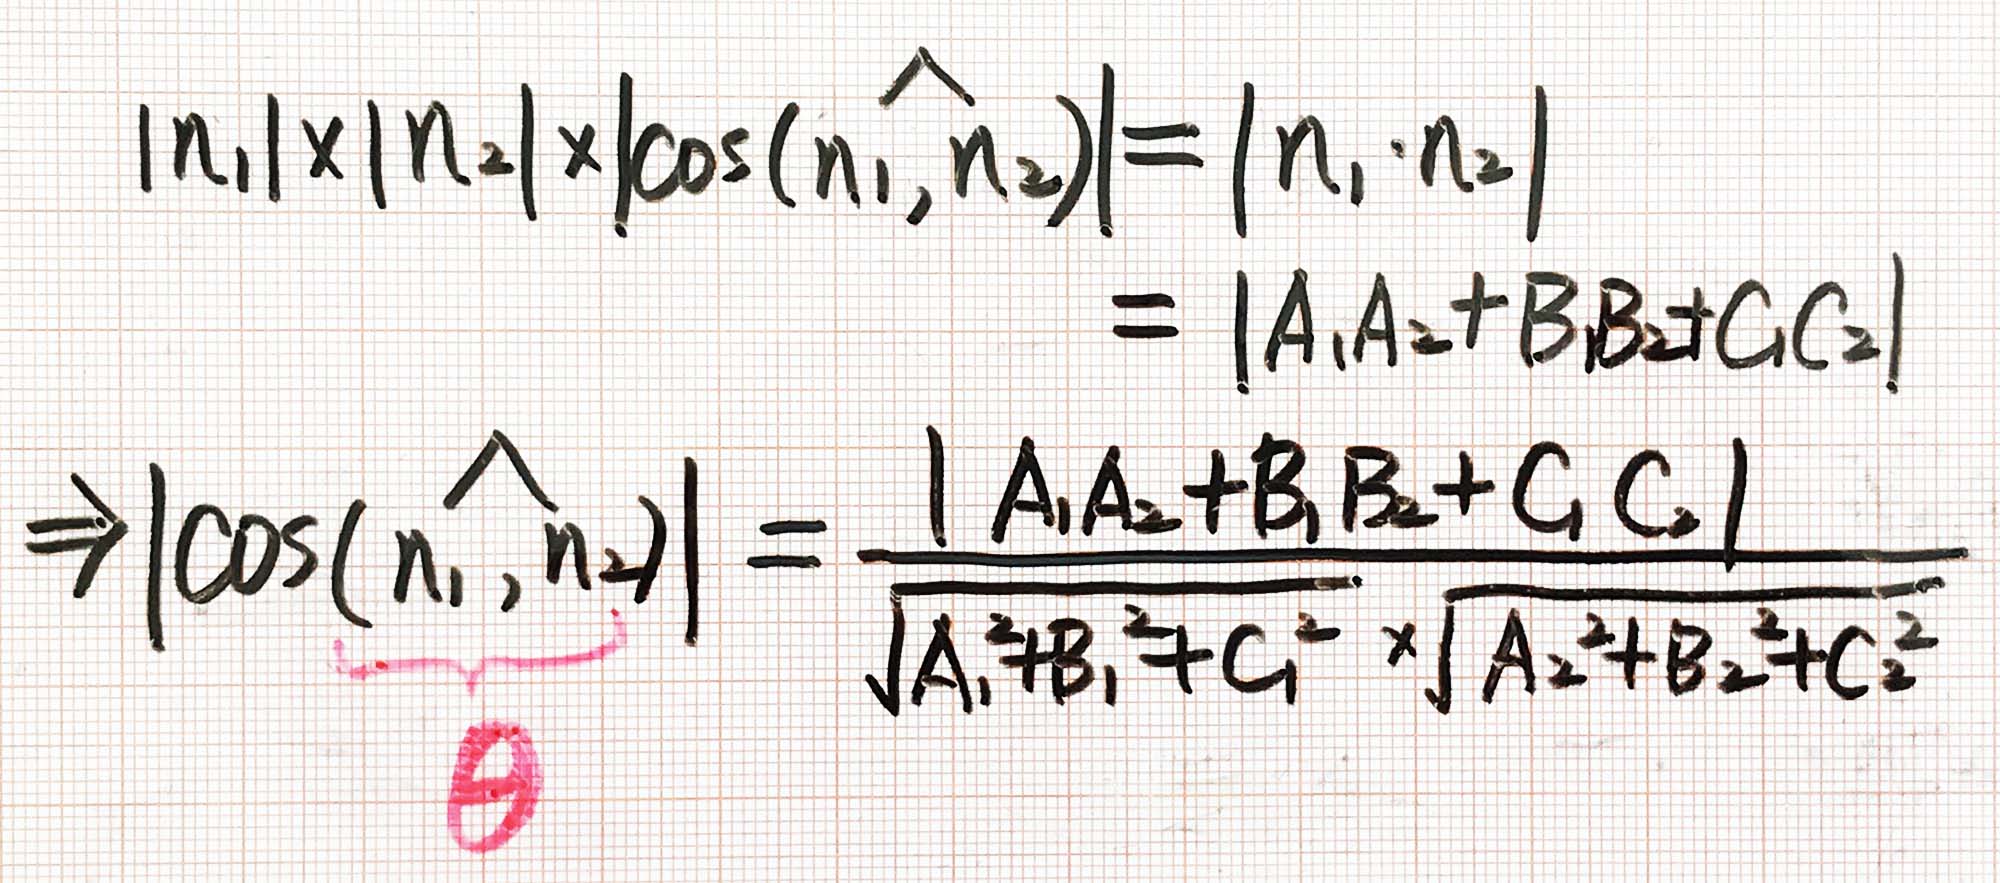 |n₁|×|n₂|×|cos(n₁^,n₂)|=|n₁·n₂|
=|A₁A₂+B₁B₂+C₁C₂|
⇒|cos(n₁^,n₂)|=|A₁A₂+B₁B₂+C₁C₂|/(√(A₁²+B₁²+C₁²)×√(A₂²+B₂²+C₂²))
θ